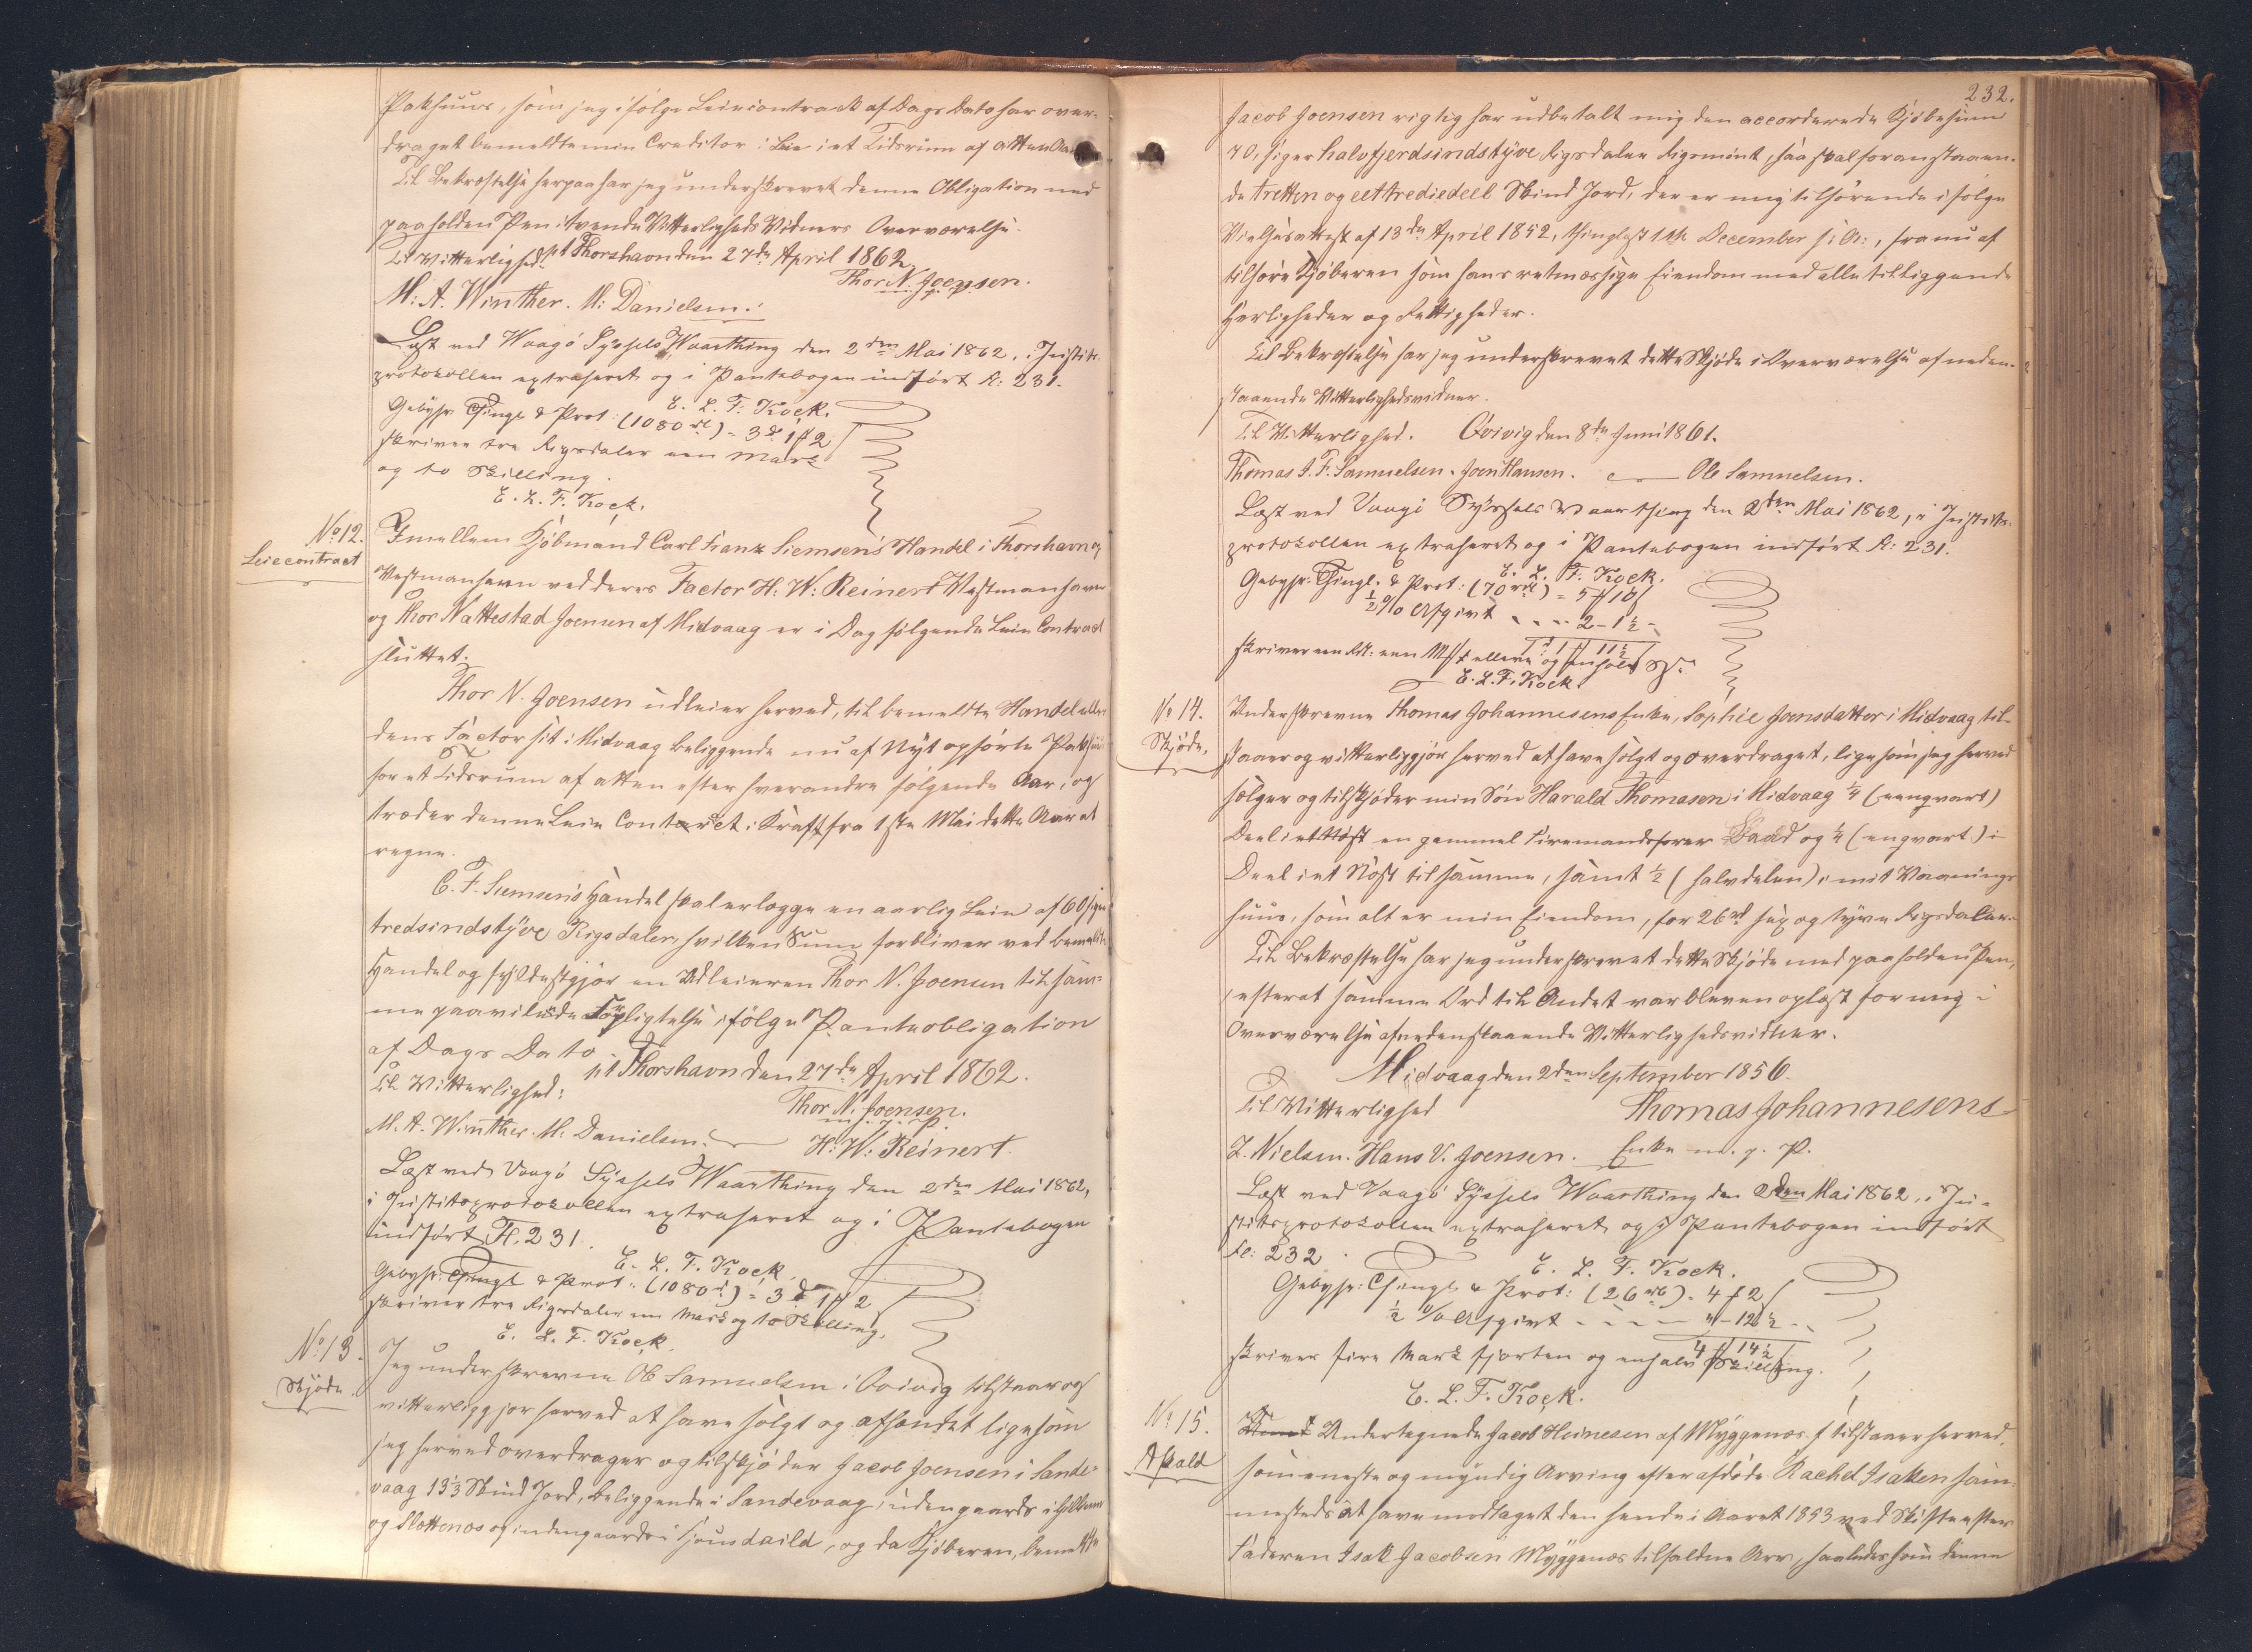 Pakhuus, som jeg ifølge Leiecontract af Dags Dato har over-
draget bemeldte min Creditor i Leie i et Tidsrum af atten Aar
Til Bekræftelse herpaa har jeg underskrevet denne Obligation med
paaholden Pen i tvende Vitterligheds Vidners Overværelse.
pt Thorshavn den 27de April 1862
Til Vitterlighed: Thor N. Joensen.
M: A. Winther. M: Danielsen.
Læst ved Waagø Syssels Vaarthing den 2den Mai 1862, i Justits-
protokollen extraheret og i Pantebogen indført Fl: 231.
E. L. F. Kock.
Gebyhr: Thingl. & Prot: (1080 rd) = 3 rd 1 # 2 s
skriver tre Rigsdaler een Mark
og to Skilling.
E. L. F. Kock.
No 12.
Leiecontract
Imellem Kjøbmand Carl Franz Siemsen's Handel i Thorshavn og
Vestmanhavn ved deres Factor H: W: Reinert Vestmanhavn
og Thor Nattestad Joensen af Midvaag er i Dag følgende Leie Contract
sluttet:
Thor N. Joensen udleier herved, til bemeldte Handel eller
dens Factor sit i Midvaag beliggende nu af Nyt opførte Pakhuus
for et Tidsrum af atten efter hverandre følgende Aar, og
træder denne Leie Contract i Kraft fra 1ste Mai dette Aar at
regne.
C. F. Siemsen's Handel skal erlægge en aarlig Leie af 60 siger
tredsindstyve Rigsdaler, hvilken Sum forbliver ved bemeldte
Handel og fyldestgjør en Udleieren Thor N. Joensen til sam-
me paahvilende Forpligtelse ifølge Panteobligation
af Dags Dato.
pt Thorshavn den 27de April 1862.
Til Vitterlighed:
Thor N. Joensen.
m. p. P.
M. A. Winther. M. Danielsen. H: W: Reinert.
Læst ved Vaagø Syssels Waarthing den 2den Mai 1862,
i Justitsprotokollen extraheret og i Pantebogen
indført Fl. 231.
E. L. F. Kock.
Gebyhr: Thingl & Prot: (1080 rd) = 3 rd 1 # 2 s
skriver tre Rigsdaler en Mark og to Skilling.
E. L. F. Kock.
No 13.
Skjøde
Jeg underskrevne Ole Samuelsen i Qvivig tilstaaer og
vitterliggjør herved at have solgt og afhændet ligesom
jeg herved overdrager og tilskjøder Jacob Joensen i Sande-
vaag 13 1/3 Skind Jord, beliggende i Sandevaag, udengaards i
og Slættenæs og indengaards i, og da Kjøberen, bemeldte
232.
Jacob Joensen rigtig har udbetalt mig den accorderede Kjøbesum
70, siger halvfjerdsindstyve Rigsdaler Rigsmønt, saa skal foranstaaen-
de tretten og eet trediedeel Skind Jord, der er mig tilhørende ifølge
af 13de April 1852, thinglyst 1ste December s: A:, fra nu af
tilhøre Kjøberen som hans retmæssige Eiendom med alle tilliggende
Herligheder og Rettigheder.
Til Bekræftelse har jeg underskrevet dette Skjøde i Overværelse af neden-
staaende Vitterlighedsvidner.
Til Vitterlighed. Qvivig den 8de Juni 1861.
Thomas J. F. Samuelsen. Joen Hansen. Ole Samuelsen.
Læst ved Vaagø Syssels Vaarthing den 2den Mai 1862, i Justits-
protokollen extraheret og i Pantebogen indført Fl: 231.
E. L. F. Kock.
Gebyhr: Thingl. & Prot: (70 rd) = 5 # 10 s
1/2 % Afgivt . . . . 2 - 1 1/2 -
1 rd 1 # 11 1/2 s
skriver een Rd: een Mk elleve og en halv Sk.
E. L. F. Kock.
No 14.
Skjøde.
Underskrevne Thomas Johannesens Enke, Sophie Joensdatter i Midvaag til-
staaer og vitterliggjør herved at have solgt og overdraget, ligesom jeg herved
sælger og tilskjøder min Søn Harald Thomasen i Midvaag 1/4 (eenqvart)
Deel i et Nøst en gammel Firemandsfarer Baad og 1/4 (enqvart) i
Deel i et Nøst tilsamme, samt 1/2 (halvdelen) i mit Vaanings
huus, som alt er min Eiendom, for 26 rd sex og tyve Rigsdaler.
Til Bekræftelse har jeg underskrevet dette Skjøde med paaholden Pen,
efterat samme Ord til Andet var bleven oplæst for mig i
Overværelse af nedenstaaende Vitterlighedsvidner.
Midvaag den 2den September 1856.
Til Vitterlighed Thomas Johannesens
Z. Nielsen. Hans V. Joensen. Enke m. p. P.
Læst ved Vaagø Syssels Waarthing den 2den Mai 1862, i Ju-
stitsprotokollen extraheret og i Pantebogen indført
Fl: 232.
E. L. F. Kock.
Gebyhr: Thingl. & Prot: (26 rd) = 4 # 2 s
1/2 % Afgivt - - - - " - 12 1/2 -
4 # 14 1/2 s
skriver fire Mark fjorten og en halv Skilling.
E. L. F. Kock.
No 15.
Afkald
Undertegnede Jacob Heinesen af Myggenæs tilstaaer herved,
som eneste og myndig Arving efter afdøde Rachel Isaksen sam-
mesteds at have modtaget den hende i Aaret 1853 ved Skifte efter
Faderen Isak Jacobsen Myggenæs tilfaldne Arv, saaledes som denne